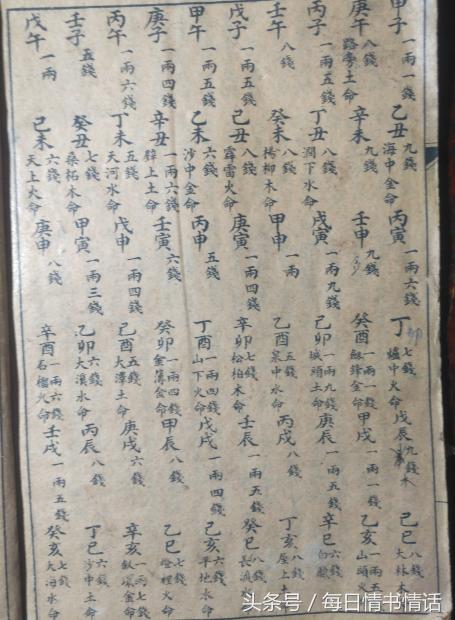 甲子 一兩一錢 乙丑 九錢 海中金命 丙寅 一兩六錢 丁卯 七錢 爐中火命 戊辰 九錢 木 己巳 八錢 大林木
庚午 八錢 路旁土命 辛未 九錢 壬申 九錢 癸酉 一兩一錢 劍鋒金命 甲戌 一兩一錢 乙亥 一兩五 山頭火
丙子 一兩五錢 丁丑 八錢 澗下水命 戊寅 一兩九錢 己卯 一兩九錢 城頭土命 庚辰 一兩五錢 辛巳 六錢 白臘
壬午 八錢 癸未 八錢 楊柳木命 甲申 一兩 乙酉 五錢 泉中水命 丙戌 八錢 丁亥 八錢 屋上
戊子 一兩五錢 己丑 八錢 霹雷火命 庚寅 一兩四錢 辛卯 七錢 松柏木命 壬辰 一兩五錢 癸巳 八錢 長流
甲午 一兩五錢 乙未 六錢 沙中金命 丙申 五錢 丁酉 一兩四錢 山下火命 戊戌 一兩四錢 己亥 六錢 平地水命
庚子 一兩四錢 辛丑 一兩六錢 辟上土命 壬寅 六錢 癸卯 一兩四錢 金簿金命 甲辰 八錢 乙巳 七錢 燈裡火命
丙午 一兩六錢 丁未 五錢 天河水命 戊申 一兩四錢 己酉 五錢 大澤土命 庚戌 六錢 辛亥 一兩七錢 釵環金命
壬子 五錢 癸丑 七錢 桑柘木命 甲寅 一兩三錢 乙卯 六錢 大溪水命 丙辰 八錢 丁巳 六錢 沙中土命
戊午 一兩 己未 六錢 天上火命 庚申 八錢 辛酉 一兩六錢 石榴火命 壬戌 一兩五錢 癸亥 七錢 大海水命
头条号 / 每日情书情话